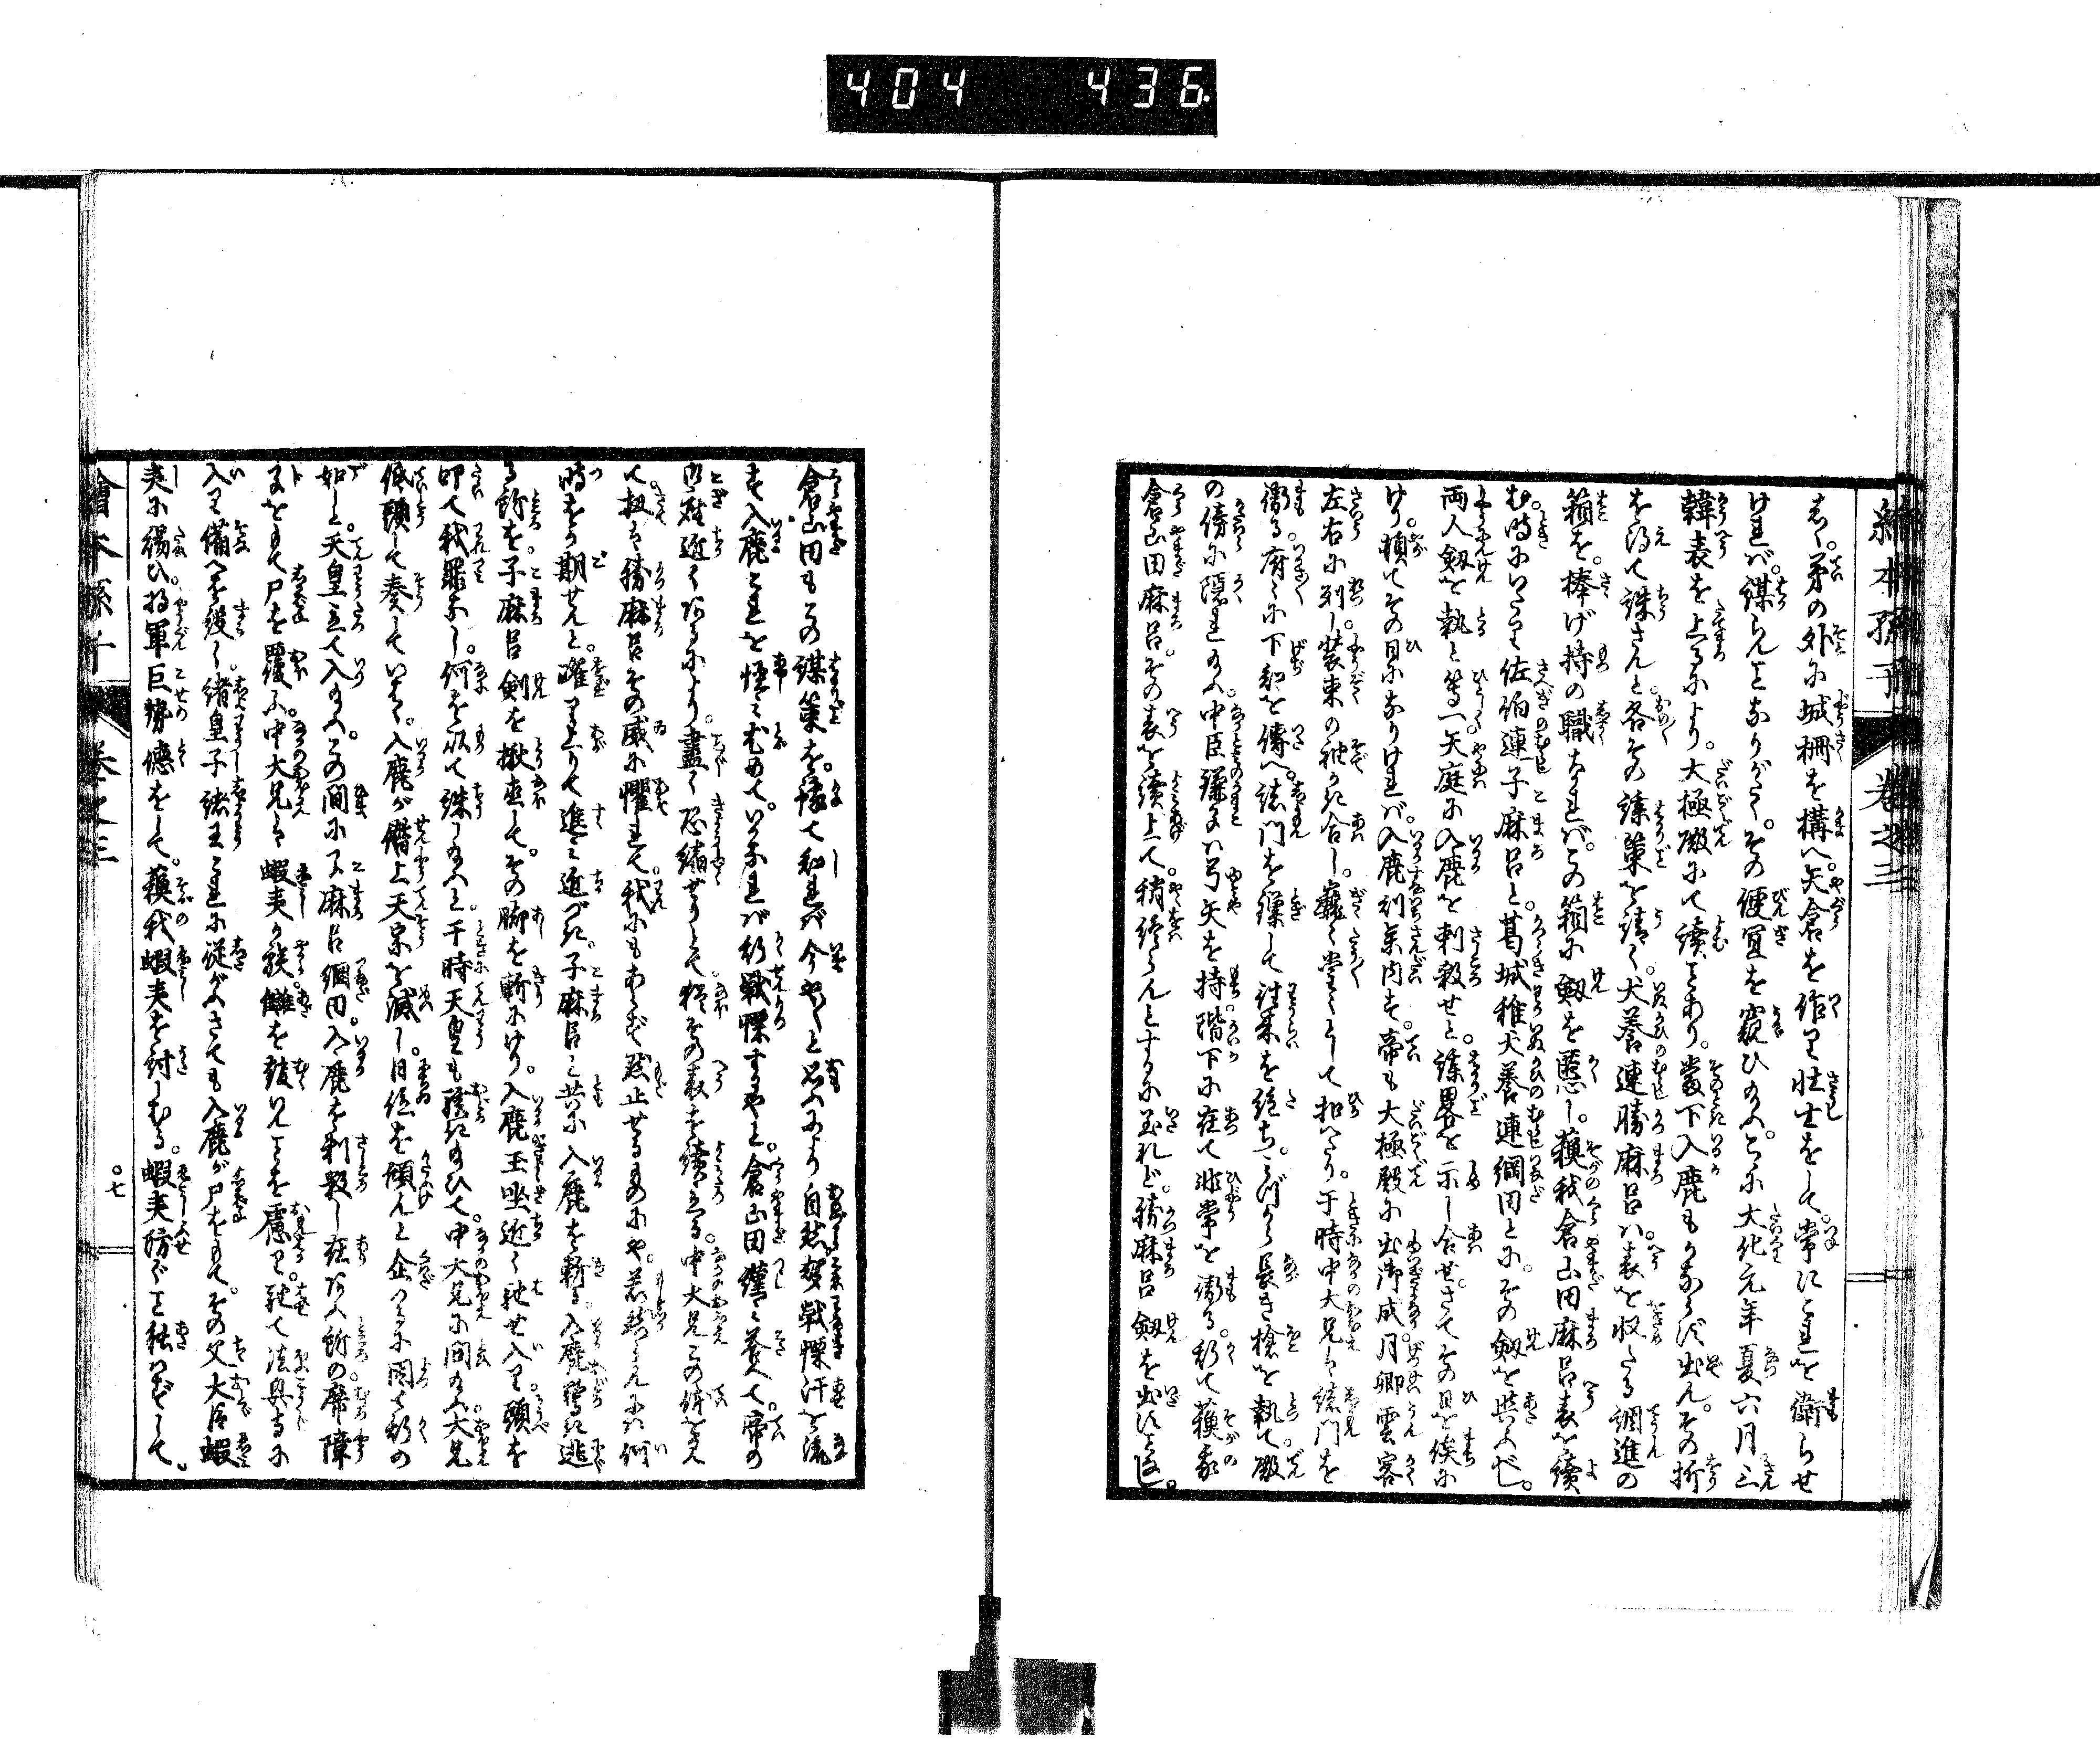 404 436
繪本孫子 卷之三
る〻。第の外に城柵を構へ。矢倉を作り壮士をして。常にこれを衛らせ
ければ。謀らんことなりがたく。その便宜を窺ひ給ふ。こゝに大化元年夏六月。三
韓表を上るにより。大極殿にて續ことあり。當下入鹿もかならず出ん。その折
を得て誅さんと。各その謀策を請く。犬養連勝麻呂ハ。表を收たる調進の
箱を。捧げ持の職なれば。この箱に劔を匿し。蘓我倉山田麻呂表を續
む。時にいたりて佐伯連子麻呂と。葛城稚犬養連綱田とに。その劔を與ふべし。
両人劔を執と等く。矢庭に入鹿を刺殺せと。謀畧を示し合せ。さてその日を俟に
けり。頓てその日になりければ。入鹿則参内す。帝も大極殿に出御成。月卿雲客
左右に列し。装束の袖を合し。巍〻堂〻として扣へたり。于時中大兄は諸門を
衛る。府〻に下知を傳へ。諸門を鎖して往来を絶ち。みづから長き槍を執て。殿
の傍に隠れ給ふ。中臣鎌子ハ弓矢を持。階下に在て非常を衛る。斯て蘓我
倉山田麻呂。その表を續上て。稍終らんとするに至れど。勝麻呂劔を出さゞりし。
倉山田もこの謀策を。豫て知れば今や〱と思ふより自然聲戦慄汗を流
す。入鹿これを怪みとがめて。いかなれば斯戦慄するやと。倉山田謹み答へて。帝の
御座近くあるにより。盡く恐縮せりとて。猶その表を續ゐる。中大兄この体を見
て。扨は勝麻呂その威に懼れて。我にもあらず黙止せるものにや。若然らんにハ何
時をか期せんと。躍り上りて進み近づき。子麻呂と共に入鹿を斬る。入鹿驚き逃
る所を。子麻呂劔を揪直して。その脚を斬にけり。入鹿玉座近く馳せ入り。頭を
叩て我罪なし。何を以て誅し給ふと。于時天皇も驚き給ひて。中大兄に問給ふ。大兄
低頭して奏していはく。入鹿が僭上天宗を滅し。日位を傾んと企つるに因て斯の
如しと。天皇立て入給ふ。この間に子麻呂綱田。入鹿を刺殺し在あふ所の席障
子をもて尸を覆ふ。中大兄は蝦夷が族。讎を報いんことを慮り。馳て法興寺に
入り備へを設く。諸皇子諸王これに從がふ。さても入鹿が尸をもて。その父大臣蝦
夷に賜ひ。将軍巨勢德をして。蘓我蝦夷を討しむる。蝦夷防ぐこと能はずして。
繪本孫子 卷之三
〇七